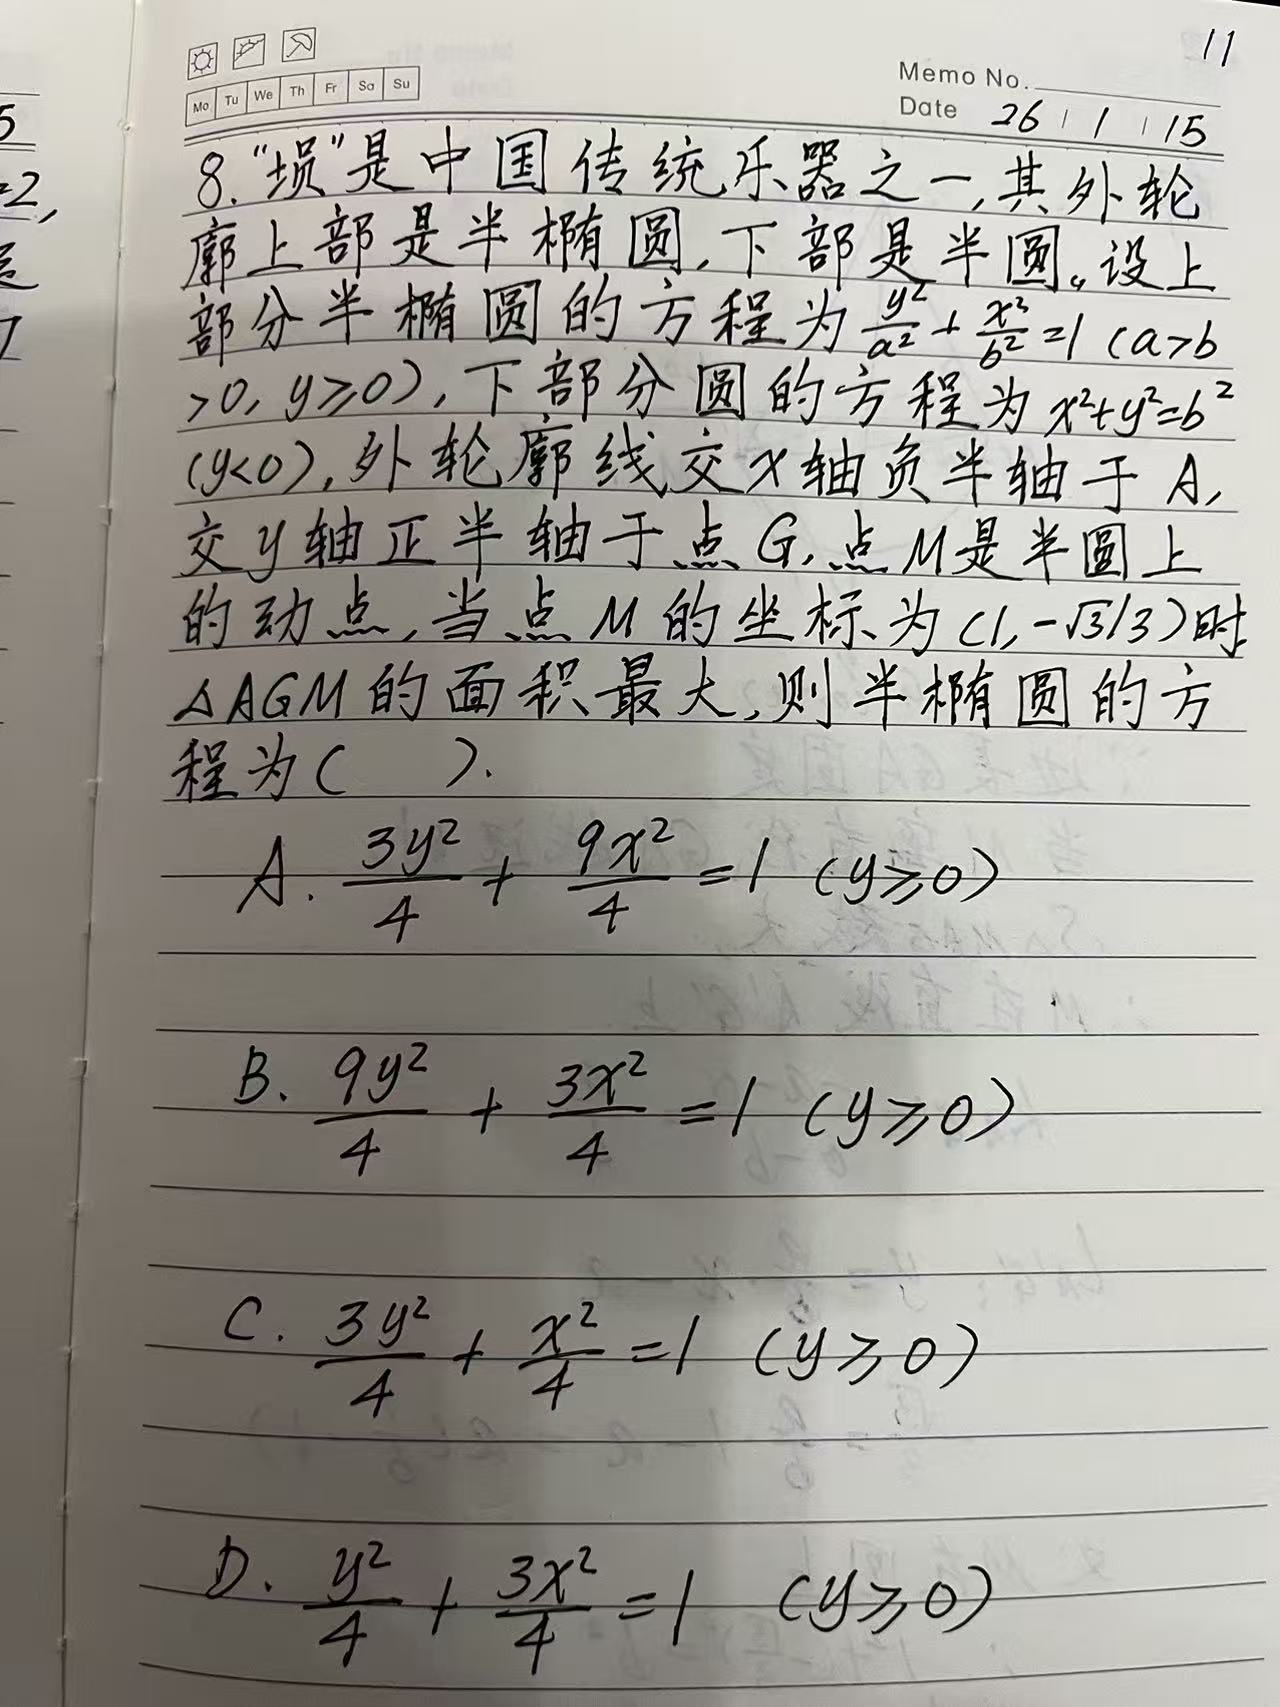 11
Memo No.
Mo Tu We Th Fr Sa Su
Date 26 / 1 / 15
8.“埙”是中国传统乐器之一,其外轮
廓上部是半椭圆,下部是半圆。设上
部分半椭圆的方程为 y²/a² + x²/b² =1 (a>b
>0, y≥0),下部分圆的方程为 x²+y²=b²
(y<0),外轮廓线交X轴负半轴于 A,
交y轴正半轴于点G,点M是半圆上
的动点,当点M的坐标为(1,-√3/3)时
△AGM的面积最大,则半椭圆的方
程为( ).
A. 3y²/4 + 9x²/4 =1 (y≥0)
B. 9y²/4 + 3x²/4 =1 (y≥0)
C. 3y²/4 + x²/4 =1 (y≥0)
D. y²/4 + 3x²/4 =1 (y≥0)
5
=2,